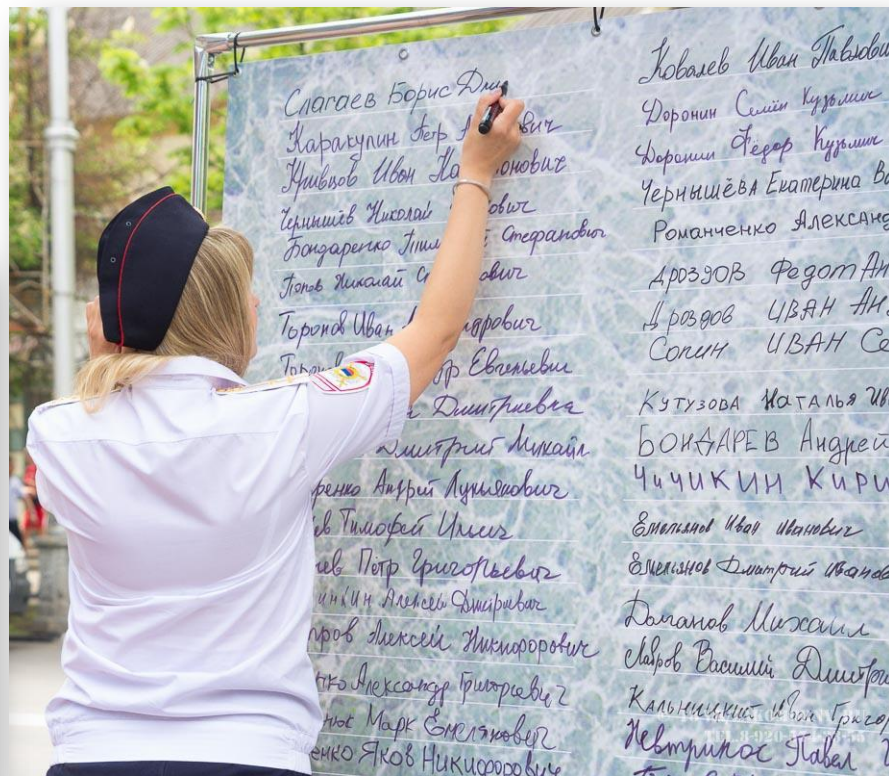 Слагаев Борис Дми
Каракулин Петр вич
Кривцов Иван онович
Чернышёв Николай ович
Бондаренко Стефанович
Попов Николай ович
Торопов Иван ндрович
Евгеньевич
Дмитриевна
Дмитрий Михайл
ренко Андрей Лукьянович
ев Тимофей Ильич
ев Петр Григорьевич
инкин Алексей Дмитриевич
Алексей Никифорович
нко Александр Григорьевич
нюк Марк Емелянович
енко Яков Никифорович
Ковалев Иван Павлови
Доронин Семён Кузьмич
Доронин Фёдор Кузьмич
Чернышёва Екатерина Ва
Романченко Александ
Дроздов Федот Ан
Дроздов Иван Ан
Сопин Иван Се
Кутузова Наталья Ив
БОНДАРЕВ Андрей
Чичикин Кири
Емельянов Иван Иванович
Емельянов Дмитрий Иванов
Долганов Михаил
Лавров Василий Дмитри
Кальницкий Иван Григо
Павел